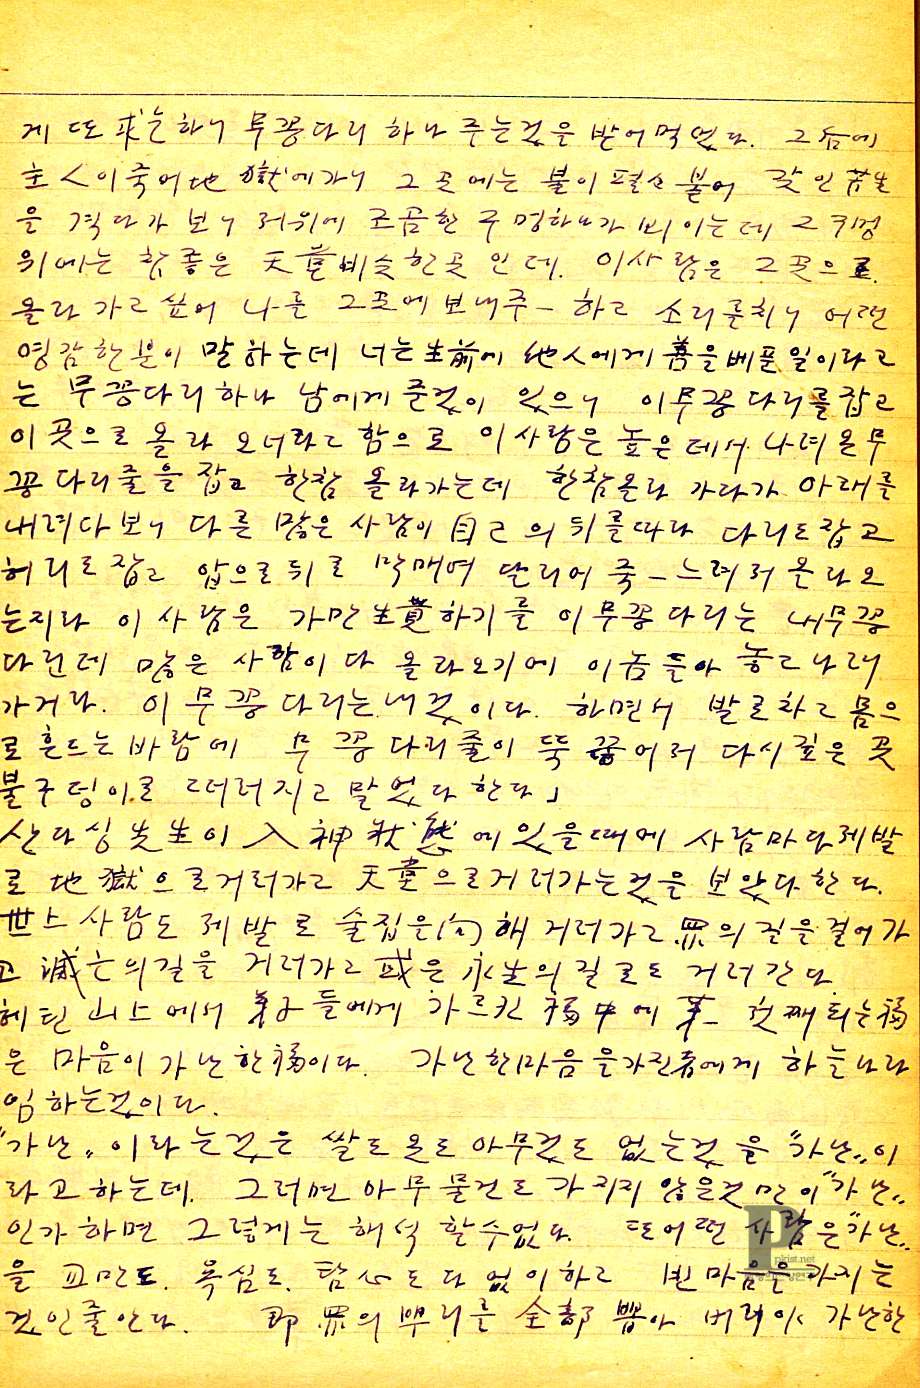 게 또 求는하니 무꽁다리 하나 주는것을 받어 먹었다. 그 後에
主人이 죽어 地獄에가니 그 곳에는 불이 펄펄 붙어 갖인 苦生
을 격다가 보니 저위에 조곰한 구멍하나가 뵈이는데 그구멍
위에는 참 좋은 天堂비슷한곳 인데. 이사람은 그곳으로
올라 가고 싶어 나를 그곳에 보내주ㅡ 하고 소리를치니 어떤
영감한분이 말하는데 너는 生前에 他人에게 善을베푼일이라고
는 무꽁다리하나 남에게 준것이 있으니 이무꽁다리를잡고
이곳으로 올라 오너라고 함으로 이사람은 높은데서 나려온무
꽁다리줄을 잡고 한참 올라가는데 한참올라 가다가 아래를
내려다 보니 다른 많은 사람이 自己의 뒤를따라 다리도잡고
허리도 잡고 앞으로뒤로 막매여 달리어 죽ㅡ느려저 올라오
는지라 이 사람은 가만 生覺하기를 이무꽁다리는 내무꽁
다린데 많은 사람이 다 올라오기에 이놈들아 놓고 나려
가거라. 이 무꽁다리는 내것이다. 하면서 발로차고 몸으
로 흔드는바람에 무꽁다리줄이 뚝 끊어저 다시 깊은 곳
불구덩이로 떠러지고 말었다 한다」
산다싱先生이 入神狀態에 있을때에 사람마다제발
로 地獄으로거러가고 天堂으로거러가는것을 보았다 한다.
世上사람도 제발로 술집을(向)해 거러가고 罪의길을걸어가
고 滅亡의길을 거러가고 或은 永生의길로도 거러간다.
헤틴 山上에서 弟子들에게 가르킨 福中에 第一 첫째되는福
은 마음이 가난한福이다. 가난한마음을가진者에게 하늘나라
임하는것이다.
"가난„이라는것은 쌀도옷도 아무것도 없는것을 "가난„이
라고하는데. 그러면 아무물건도 가지지 않은것만이 "가난„
인가 하면 그렇게는 해석 할수없다. 또어떤 사람은 "가난„
을 교만도. 욕심도. 탐心도 다 없이하고 빈마음을 가지는
것인줄안다. 即 罪의 뿌리를 全部 뽑아 버려야 가난한
P
pkrist.net